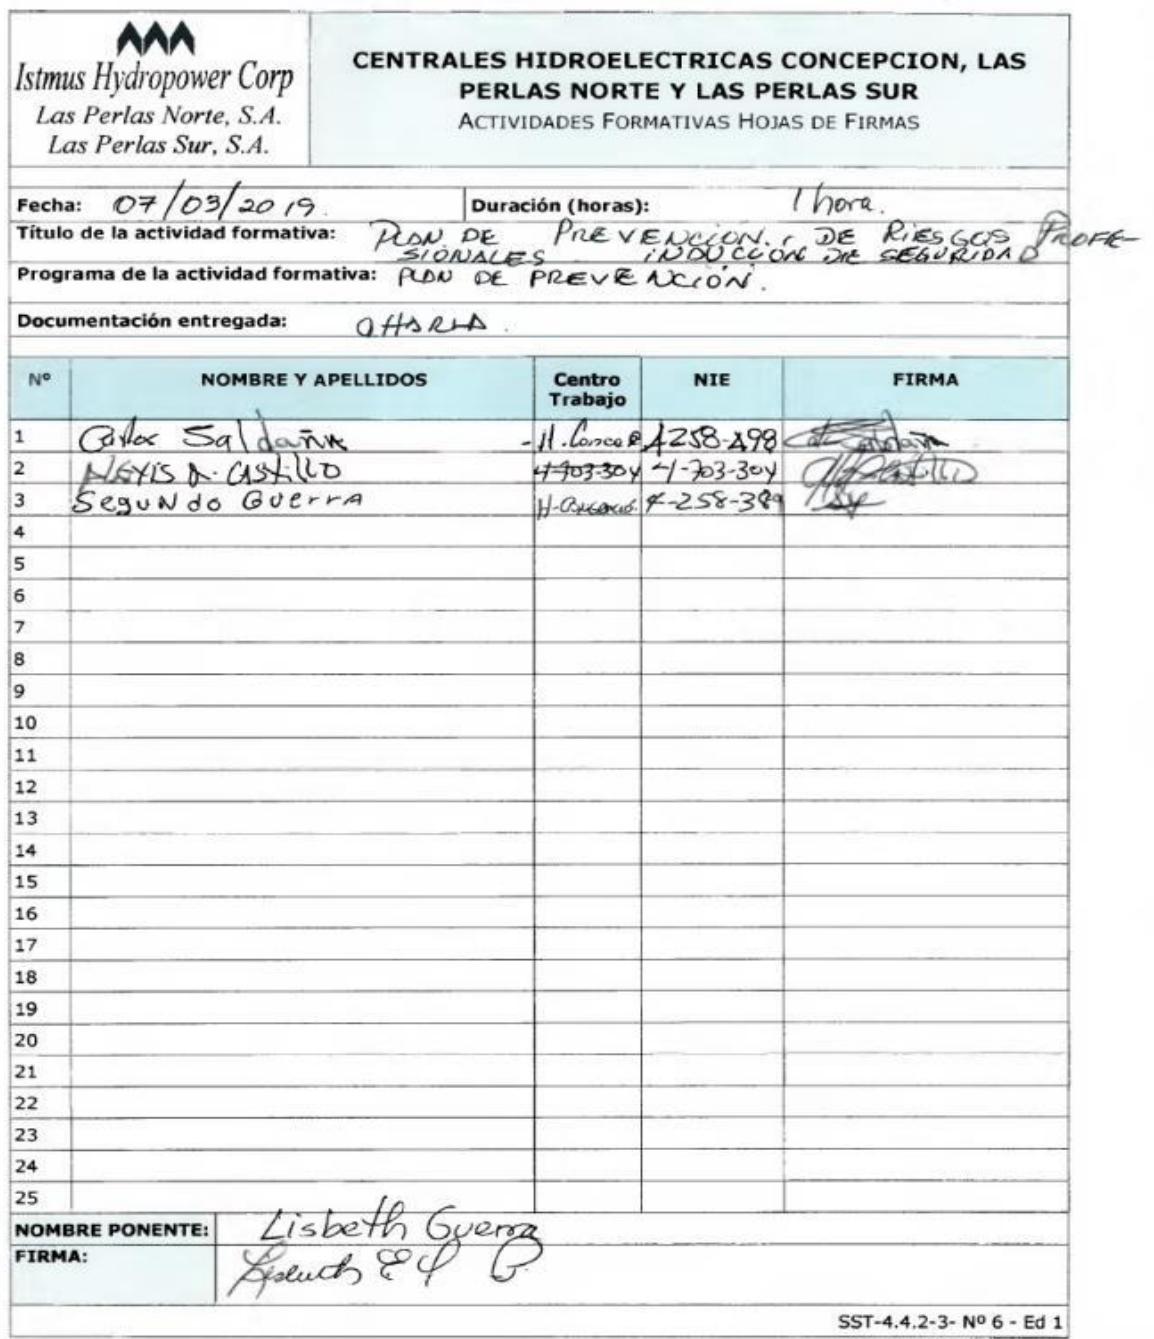 Istmus Hydropower Corp
Las Perlas Norte, S.A.
Las Perlas Sur, S.A.
CENTRALES HIDROELECTRICAS CONCEPCION, LAS
PERLAS NORTE Y LAS PERLAS SUR
ACTIVIDADES FORMATIVAS HOJAS DE FIRMAS
Fecha: 07/03/2019. Duración (horas): 1 hora.
Título de la actividad formativa: PLAN DE PREVENCION. DE RIESGOS PROFE-
SIONALES INDUCCIÓN DE SEGURIDAD
Programa de la actividad formativa: PLAN DE PREVENCIÓN.
Documentación entregada: CHARLA.
Nº NOMBRE Y APELLIDOS Centro Trabajo NIE FIRMA
1 Carlos Saldaña -H. Concep 4258-498
2 ALEXIS A. CASTILLO 4-703-304 4-703-304
3 Segundo Guerra 4-258-389
4
5
6
7
8
9
10
11
12
13
14
15
16
17
18
19
20
21
22
23
24
25
NOMBRE PONENTE: Lisbeth Guerra
FIRMA:
SST-4.4.2-3- Nº 6 - Ed 1